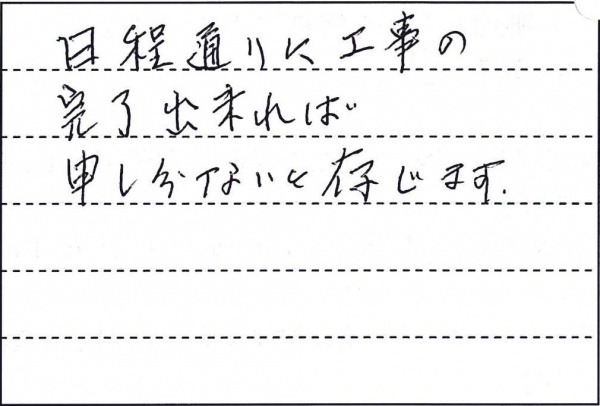 日程通りに工事の
完了出来れば
申し分ないと存じます.